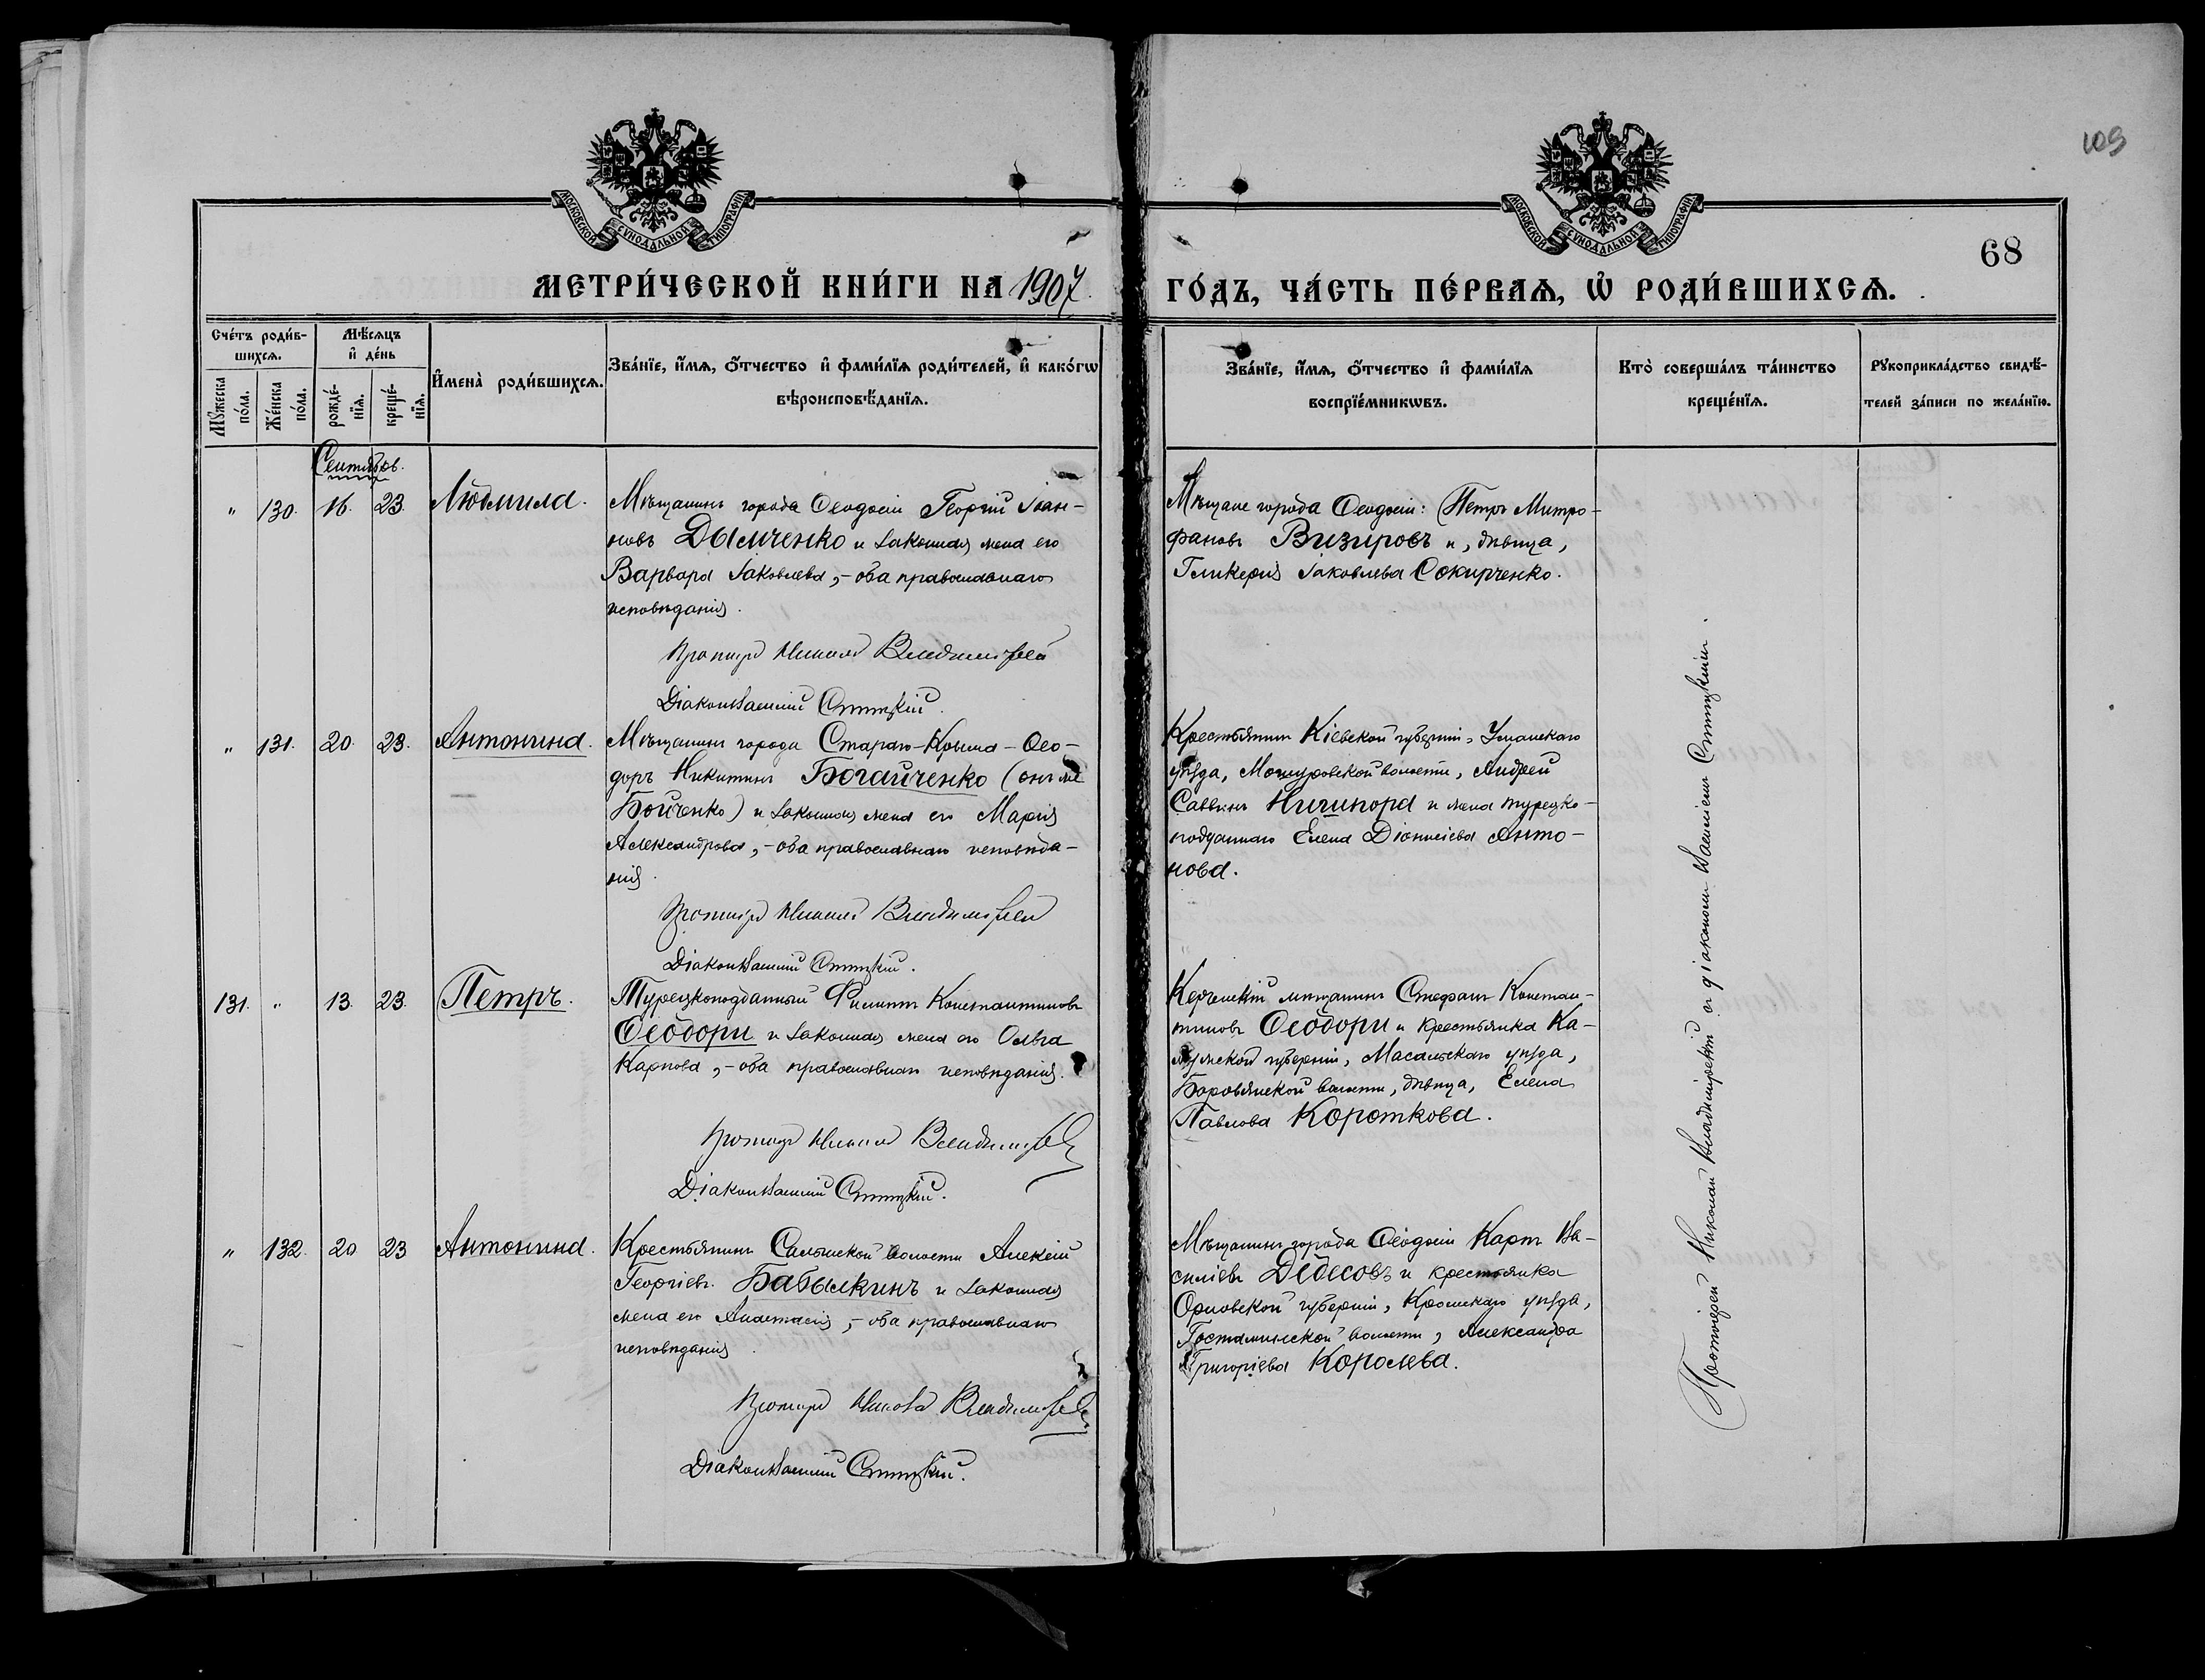 109
МОСКОВСКОЙ СѴНОДАЛЬНОЙ ТИПОГРАФІИ
МОСКОВСКОЙ СѴНОДАЛЬНОЙ ТИПОГРАФІИ
68
МЕТРИ́ЧЕСКОЙ КНИ́ГИ НА 1907
ГО́ДЪ, ЧА́СТЬ ПЕ́РВАѦ, Ѡ҆ РОДИ́ВШИХСѦ.
Сче́тъ роди́в-
шихсѧ.
Мꙋ́жеска по́ла.
Же́нска по́ла.
Мѣ́сѧцъ
и҆ де́нь
рожде́-
нїѧ.
креще́-
нїѧ.
И҆мена̀ роди́вшихсѧ.
Зва́нїе, и҆́мѧ, ѻ҆́тчество и҆ фами́лїѧ роди́телей, и҆ како́гѡ
вѣроисповѣ́данїѧ.
Зва́нїе, и҆́мѧ, ѻ҆́тчество и҆ фами́лїѧ
воспрїе́мникѡвъ.
Кто̀ соверша́лъ та́инство
креще́нїѧ.
Рꙋкоприкла́дство свидѣ́-
телей за́писи по жела́нїю.
Сентябрь.
" 130. 16. 23. Людмила.
Мѣщанинъ города Ѳеодосіи Георгій Іоан-
новъ Дымченко и законная жена его
Варвара Іаковлева, - оба православнаго
исповѣданія.
Протоіерей Николай Владимірскій
Діаконъ Василій
Мѣщане города Ѳеодосіи: Петръ Митро-
фановъ Визировъ и, дѣвица,
Гликерія Іаковлева Сокирченко.
" 131. 20. 23. Антонина.
Мѣщанинъ города Стараго-Крыма - Ѳео-
доръ Никитинъ Богайченко (онъ же
Бойченко) и законная жена его Марія
Александрова, - оба православнаго исповѣда-
нія.
Протоіерей Николай Владимірскій
Діаконъ Василій
Крестьянинъ Кіевской губерніи, Уманскаго
уѣзда, Мошуровской волости, Андрей
Саввинъ Ничипора и жена турецко-
подданнаго Елена Діонисіева Анто-
нова.
131. " 13. 23. Петръ.
Турецкоподданный Филиппъ Константиновъ
Ѳеодори и законная жена его Ольга
Карпова, - оба православнаго исповѣданія.
Протоіерей Николай Владимірскій
Діаконъ Василій
Керченскій мѣщанинъ Стефанъ Констан-
тиновъ Ѳеодори и крестьянка Ка-
лужской губерніи, Масальскаго уѣзда,
волости, дѣвица, Елена
Павлова Короткова.
" 132. 20 23 Антонина.
Крестьянинъ волости Алексій
Георгіевъ Бабылкинъ и законная
жена его Анастасія, - оба православнаго
исповѣданія.
Протоіерей Николай Владимірскій
Діаконъ Василій
Мѣщанинъ города Ѳеодосіи Карпъ Ва-
силіевъ Дедесовъ и крестьянка
Орловской губерніи, Кромскаго уѣзда,
Гостомльской волости, Александра
Григоріева Королева.
Протоіерей Николай Владимірскій съ діакономъ Василіемъ